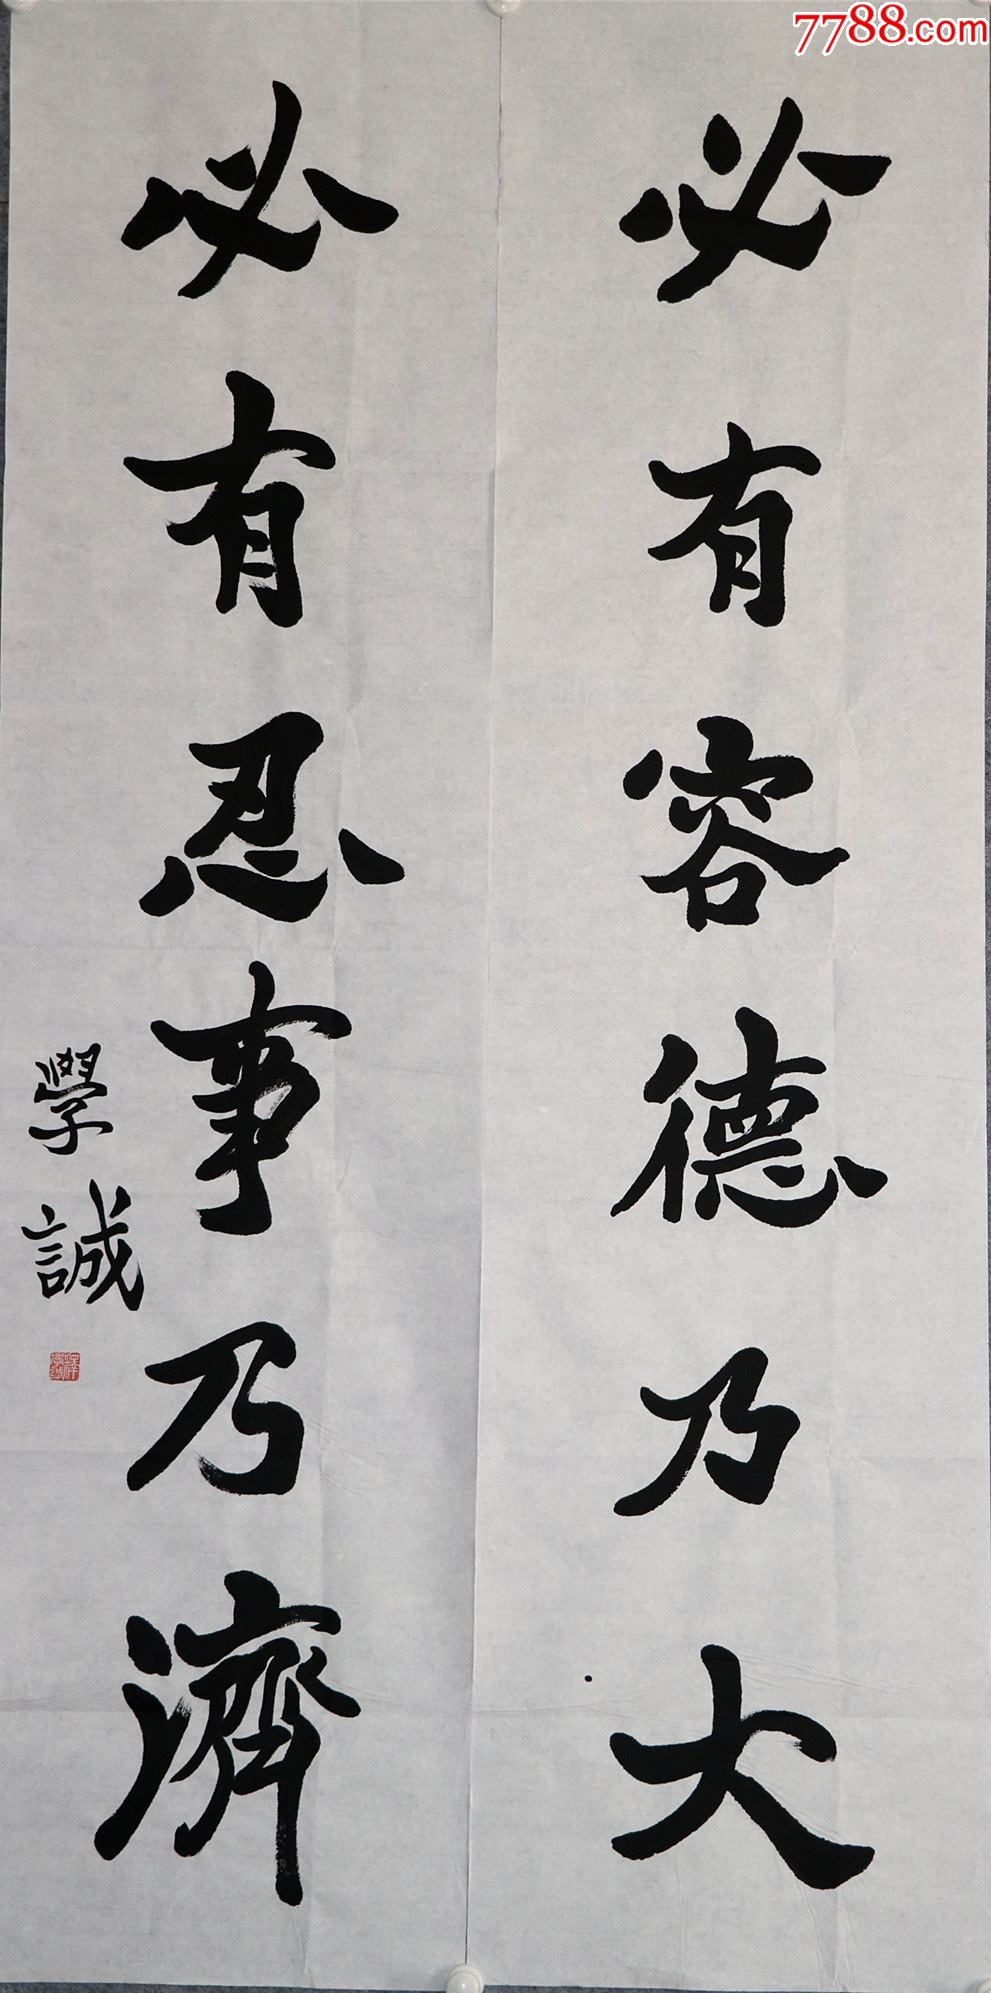 7788.com
必有容德乃大
必有忍事乃濟
學誠